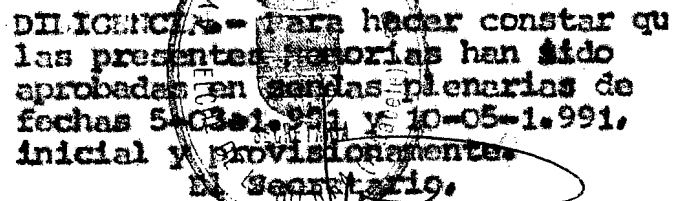 DILIGENCIA.- Para hacer constar qu
las presentes memorias han sido
aprobadas en sendas plenarias de
fechas 5-03-1.991 y 10-05-1.991,
inicial y provisionamente.
El Secretario,